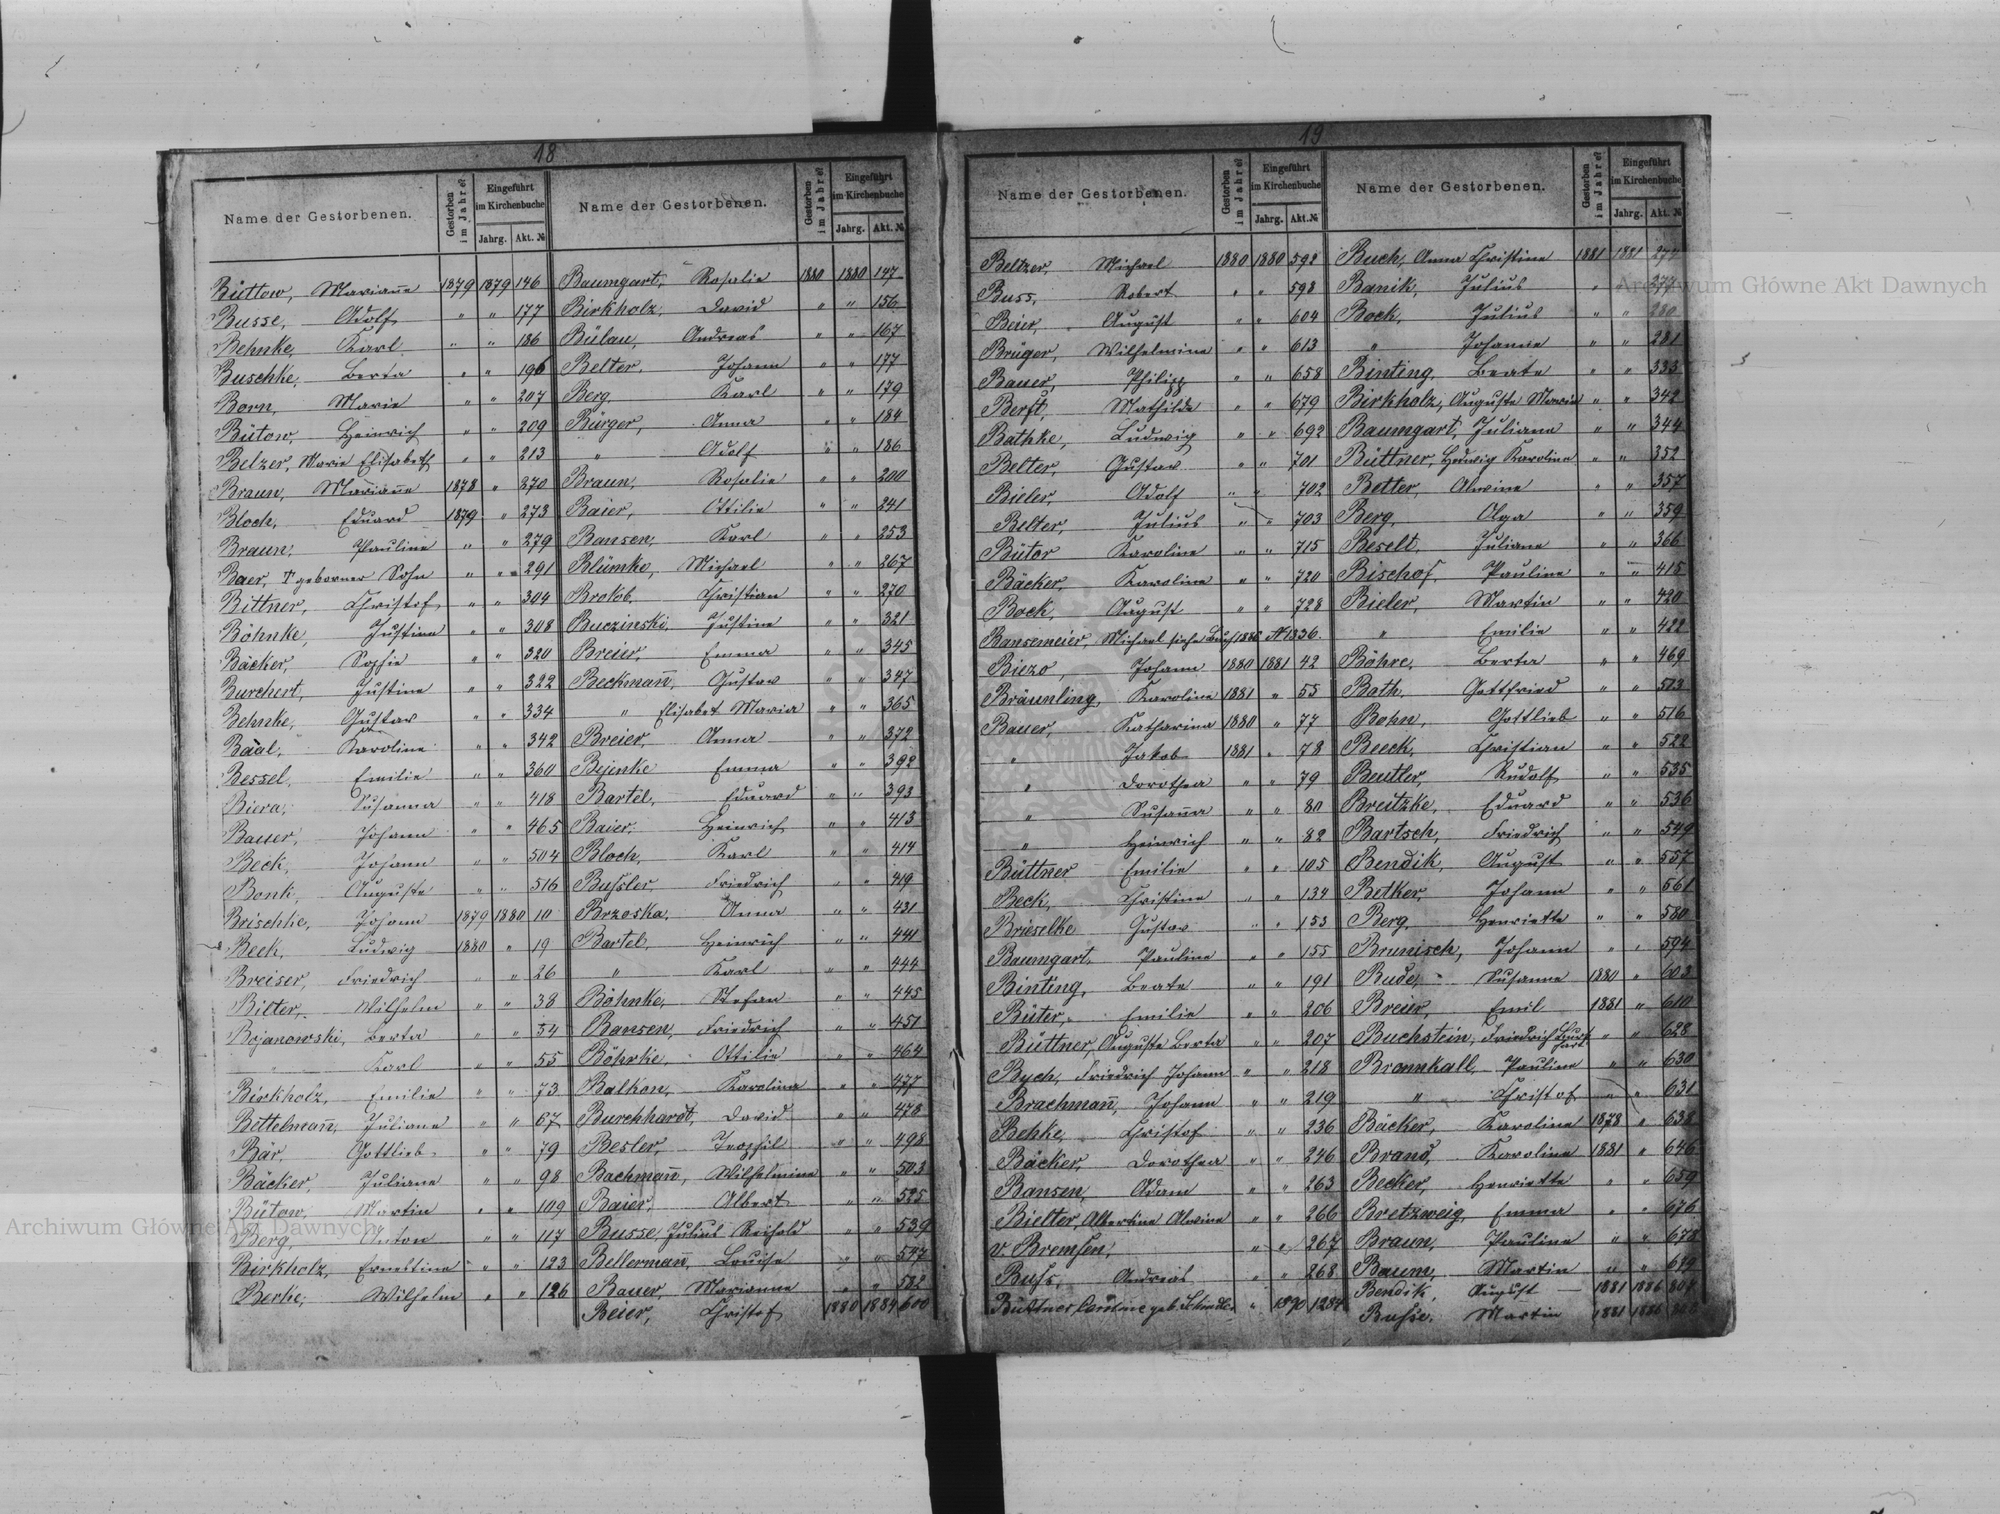 18
Name der Gestorbenen. Gestorben im Jahre Eingeführt im Kirchenbuche Jahrg. Akt. №
Büttow, Marianne 1879 1879 146
Busse, Adolf " " 177
Behnke, Karl " " 186
Buschke, Berta " " 196
Born, Marie " " 207
Bütow, Heinrich " " 209
Belzer, Marie Elisabeth " " 213
Braun, Marianne 1878 " 270
Bloch, Eduard 1879 " 273
Braun, Pauline " " 279
Baer, geborner Sohn " " 291
Bittner, Christof " " 304
Böhnke, Justine " " 308
Bäcker, Sophie " " 320
Burchert, Justine " " 322
Behnke, Gustav " " 334
Baal, Karoline " " 342
Bessel, Emilie " " 360
Biera, Susanna " " 418
Bauer, Johann " " 465
Beck, Johann " " 504
Bonk, Auguste " " 516
Brischke, Johann 1879 1880 10
Beek, Ludwig 1880 " 19
Breiser, Friedrich " " 26
Bilter, Wilhelm " " 38
Bojanowski, Berta " " 54
" Karl " " 55
Birkholz, Emilie " " 73
Bettelmann, Juliane " " 67
Bär, Gottlieb " " 79
Bäcker, Juliane " " 98
Bütow, Martin " " 109
Berg, Anton " " 117
Birkholz, Ernestine " " 123
Berke, Wilhelm " " 126
Name der Gestorbenen. Gestorben im Jahre Eingeführt im Kirchenbuche Jahrg. Akt. №
Baumgart, Rosalie 1880 1880 147
Birkholz, David " " 156
Bülau, Andreas " " 167
Belter, Johann " " 177
Berg, Karl " " 179
Bürger, Anna " " 184
" Adolf " " 186
Braun, Rosalie " " 200
Baier, Ottilie " " 241
Bansen, Karl " " 253
Blümke, Michael " " 267
Brokob, Christian " " 270
Buczinski, Justine " " 321
Breier, Emma " " 345
Beckmann, Gustav " " 347
" Elisabet Maria " " 365
Breier, Anna " " 372
Bejenke Emma " " 392
Bartel, Eduard " " 393
Baier, Heinrich " " 413
Bloch, Karl " " 414
Bussler, Friedrich " " 419
Brzoska, Anna " " 431
Bartel, Heinrich " " 441
" Karl " " 444
Böhnke, Stefan " " 445
Bansen, Friedrich " " 451
Böhrke, Ottilie " " 464
Balkon, Karolina " " 477
Burchhardt, David " " 478
Besler, Teophil " " 498
Bachmann, Wilhelmine " " 503
Baier, Albert " " 525
Busse, Julius Reihold " " 539
Bellermann, Louise " " 547
Bauer, Marianne " " 582
Beier, Christof 1880 1884 600
19
Name der Gestorbenen. Gestorben im Jahre Eingeführt im Kirchenbuche Jahrg. Akt. №
Beltzer, Michael 1880 1880 592
Buss, Robert " " 598
Beier, August " " 604
Brüger, Wilhelmine " " 613
Bauer, Philipp " " 658
Berft, Mathilde " " 679
Bathke, Ludwig " " 692
Belter, Gustav " " 701
Bieler, Adolf " " 702
Belter, Julius " " 703
Bütor Karoline " " 715
Bäcker, Karoline " " 720
Bock, August " " 728
Bansemeier, Michael siehe Buch 1886 № 1336.
Biezo, Johann 1880 1881 42
Bräunling, Karoline 1881 " 55
Bauer, Katharina 1880 " 77
" Jakob 1881 " 78
" Dorothea " " 79
" Susanna " " 80
" Heinrich " " 82
Büttner Emilie " " 105
Beck, Christine " " 134
Brieselke Gustav " " 153
Baumgart, Pauline " " 155
Binting, Beate " " 191
Büter, Emilie " " 206
Büttner, Auguste Berta " " 207
Bych, Friedrich Johann " " 218
Brachmann, Johann " " 219
Behke, Christof " " 236
Bäcker, Dorothea " " 246
Bansen, Adam " " 263
Bielter, Albertine Alwine " " 266
v. Bremsen, " " 267
Buss, Andreas " " 268
Büttner Caroline geb. " 1890 1284
Name der Gestorbenen. Gestorben im Jahre Eingeführt im Kirchenbuche Jahrg. Akt. №
Buch, Anna Christine 1881 1881 274
Banik, Julius " " 277
Bock, Julius " " 280
" Johanne " " 281
Binting, Beate " " 333
Birkholz, Auguste Maria " " 342
Baumgart, Juliana " " 344
Büttner, Hedwig Karoline " " 352
Better, Alwine " " 357
Berg, Olga " " 359
Beselt, Juliane " " 366
Bischof, Pauline " " 415
Bieler, Martin " " 420
" Emilie " " 422
Böhre, Berta " " 469
Bath, Gottfried " " 513
Bohn, Gottlieb " " 516
Beeck, Christian " " 522
Beutler, Rudolf " " 535
Breitzke, Eduard " " 536
Bartsch, Friedrich " " 549
Bendik, August " " 557
Betker, Johann " " 561
Berg, Henriette " " 580
Brunisch, Johann " " 594
Bude, Susanne 1880 " 603
Breier, Emil 1881 " 610
Buchstein, Friedrich " " 628
Bronnkall, Pauline " " 630
" Christof " " 631
Bäcker, Karoline 1878 " 638
Brand, Karoline 1881 " 646
Becker, Henriette " " 659
Bretzweig, Emma " " 676
Braun, Pauline " " 678
Baum, Martin " " 679
Bendik, August 1881 1886
Busse, Martin 1881 1886
Archiwum Główne Akt Dawnych
Archiwum Główne Akt Dawnych